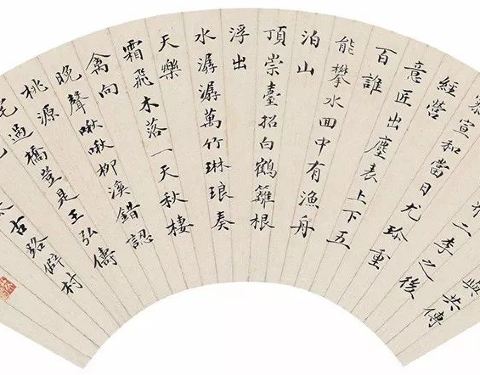 共傳
二李之後
宣和當日尤珍重
經營
意匠出塵表上下五
百誰
能攀水面中有漁舟
泊山
頂崇臺招白鶴籬根
浮出
水潺潺萬竹琳琅奏
天樂
霜飛木落一天秋棲
禽向
晚聲啾啾柳溪錯認
桃源
過橋豈是王弘儔
太古路僻村